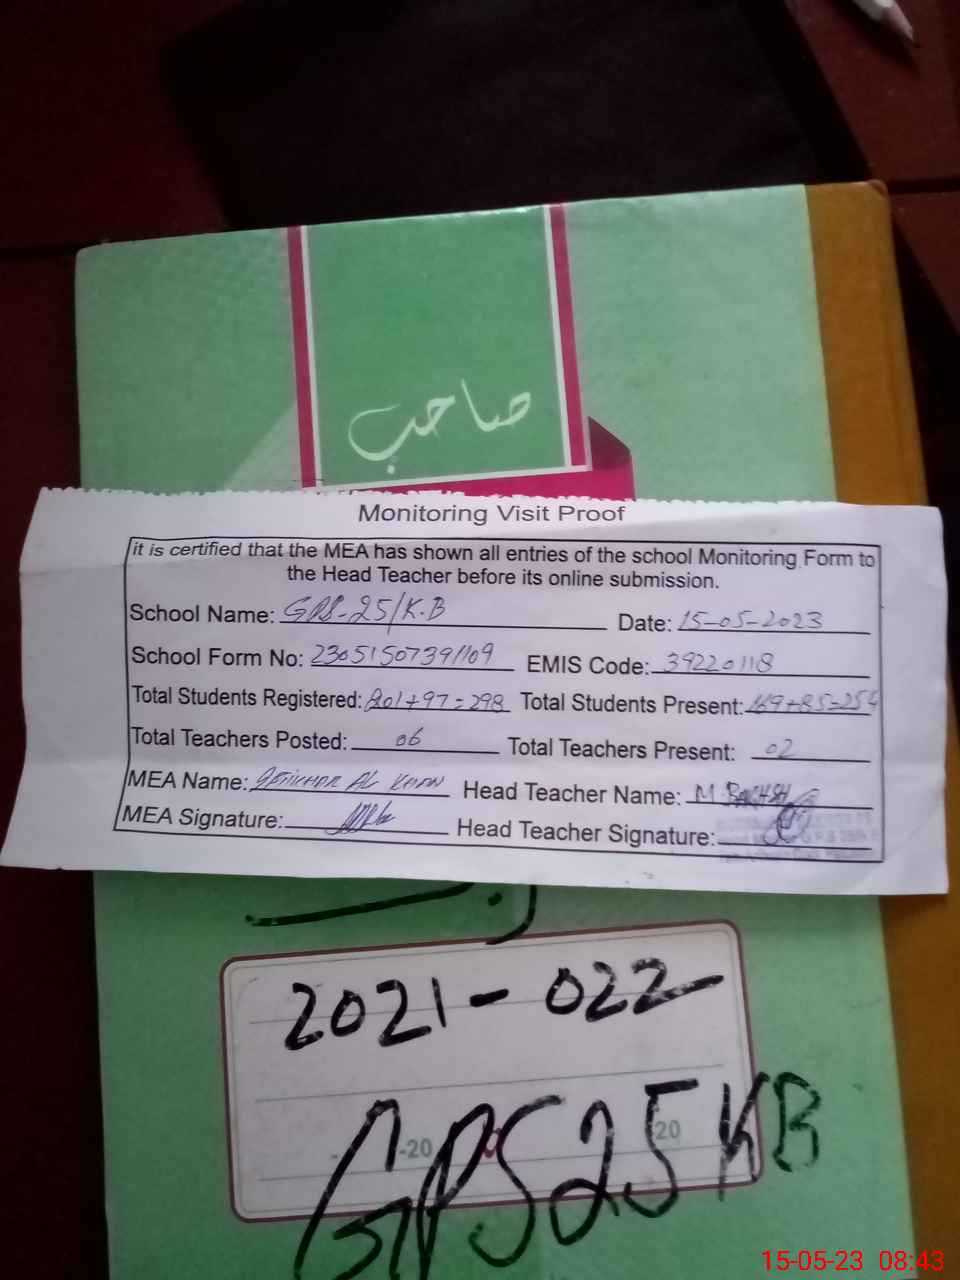 صاحب
Monitoring Visit Proof
it is certified that the MEA has shown all entries of the school Monitoring Form to
the Head Teacher before its online submission.
School Name: GPS-25/K.B Date: 15-05-2023
School Form No: 23051507391109 EMIS Code: 39220118
Total Students Registered: 201+97=298 Total Students Present: 169+85=254
Total Teachers Posted: 06 Total Teachers Present: 02
MEA Name: Khan Head Teacher Name: M BAKHSH
MEA Signature: Head Teacher Signature:
2021-022
-20 20
GPS 25 KB
15-05-23 08:43